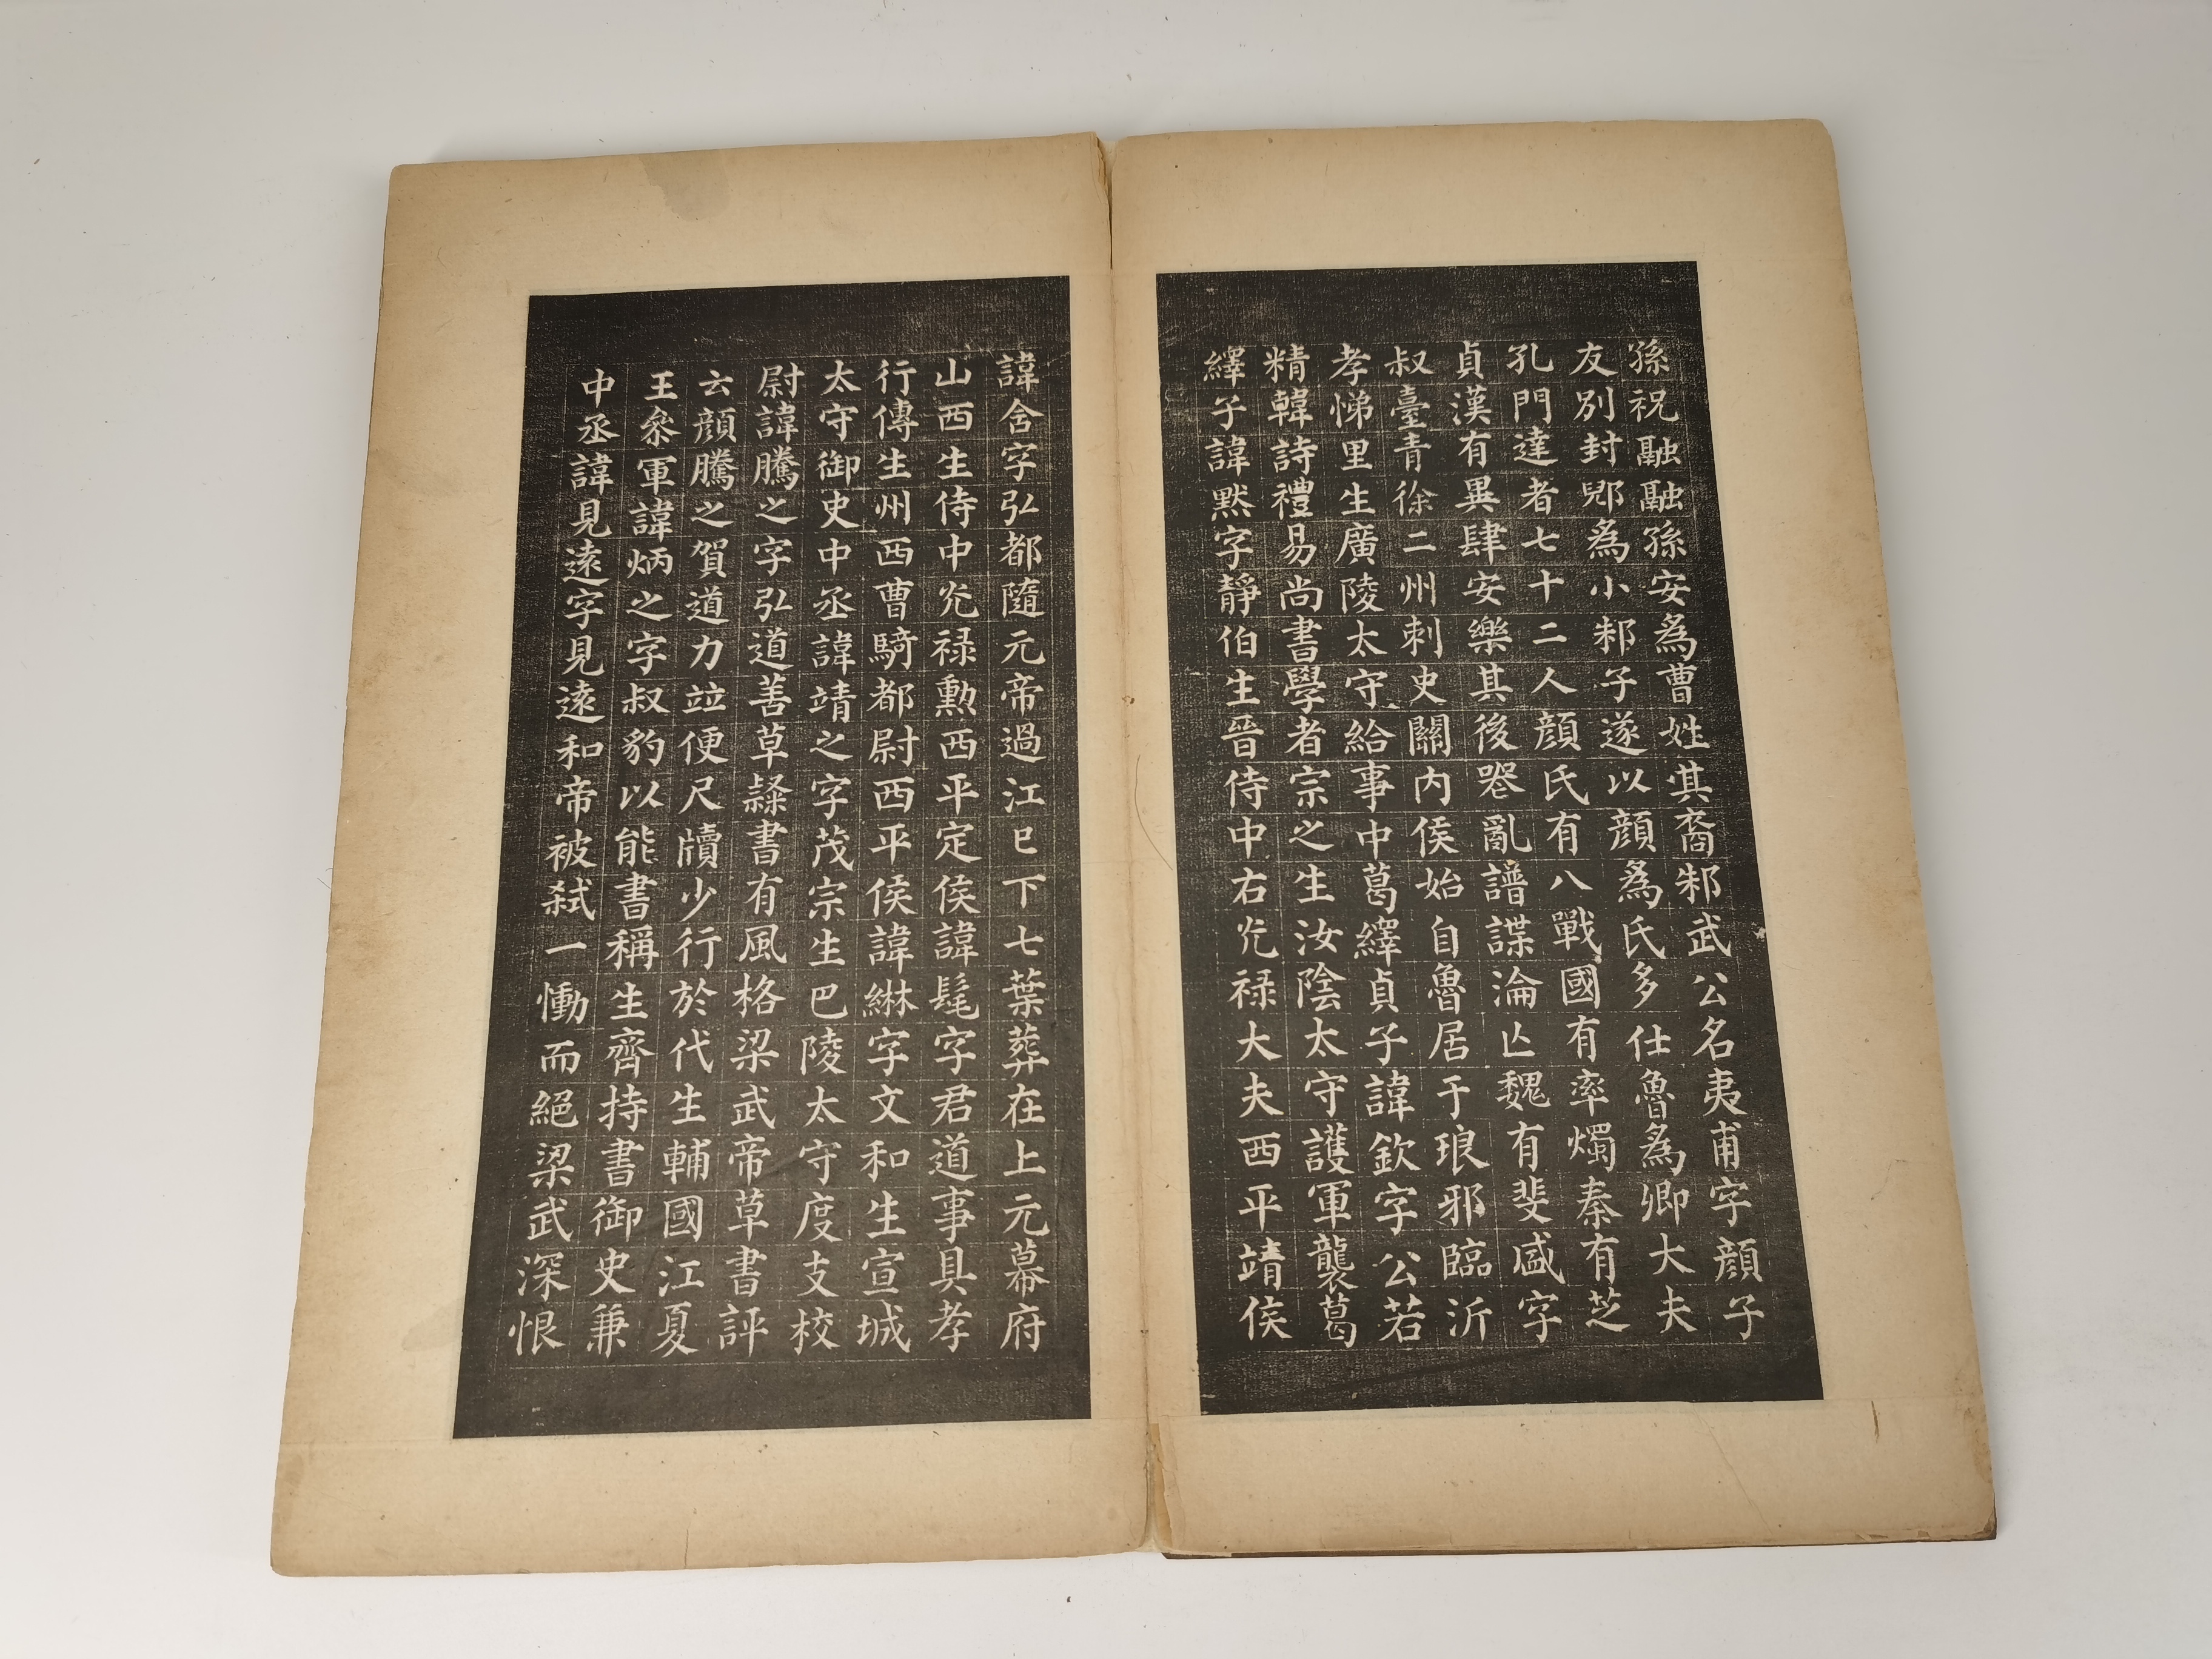 孫祝融融孫安為曹姓其裔邾武公名夷甫字顏子
友別封郳為小邾子遂以顏為氏多仕魯為卿大夫
孔門達者七十二人顏氏有八戰國有率燭秦有芝
貞漢有異肆安樂其後喪亂譜諜淪亡魏有斐盛字
叔臺青徐二州刺史關内侯始自魯居于琅邪臨沂
孝悌里生廣陵太守給事中葛繹貞子諱欽字公若
精韓詩禮易尚書學者宗之生汝陰太守護軍襲葛
繹子諱默字靜伯生晉侍中右光禄大夫西平靖侯
諱含字弘都隨元帝過江已下七葉葬在上元幕府
山西生侍中光禄勳西平定侯諱髦字君道事具孝
行傳生州西曹騎都尉西平侯諱綝字文和生宣城
太守御史中丞諱靖之字茂宗生巴陵太守度支校
尉諱騰之字弘道善草隸書有風格梁武帝草書評
云顏騰之賀道力竝便尺牘少行於代生輔國江夏
王參軍諱炳之字叔豹以能書稱生齊持書御史兼
中丞諱見遠字見遠和帝被弑一慟而絕梁武深恨